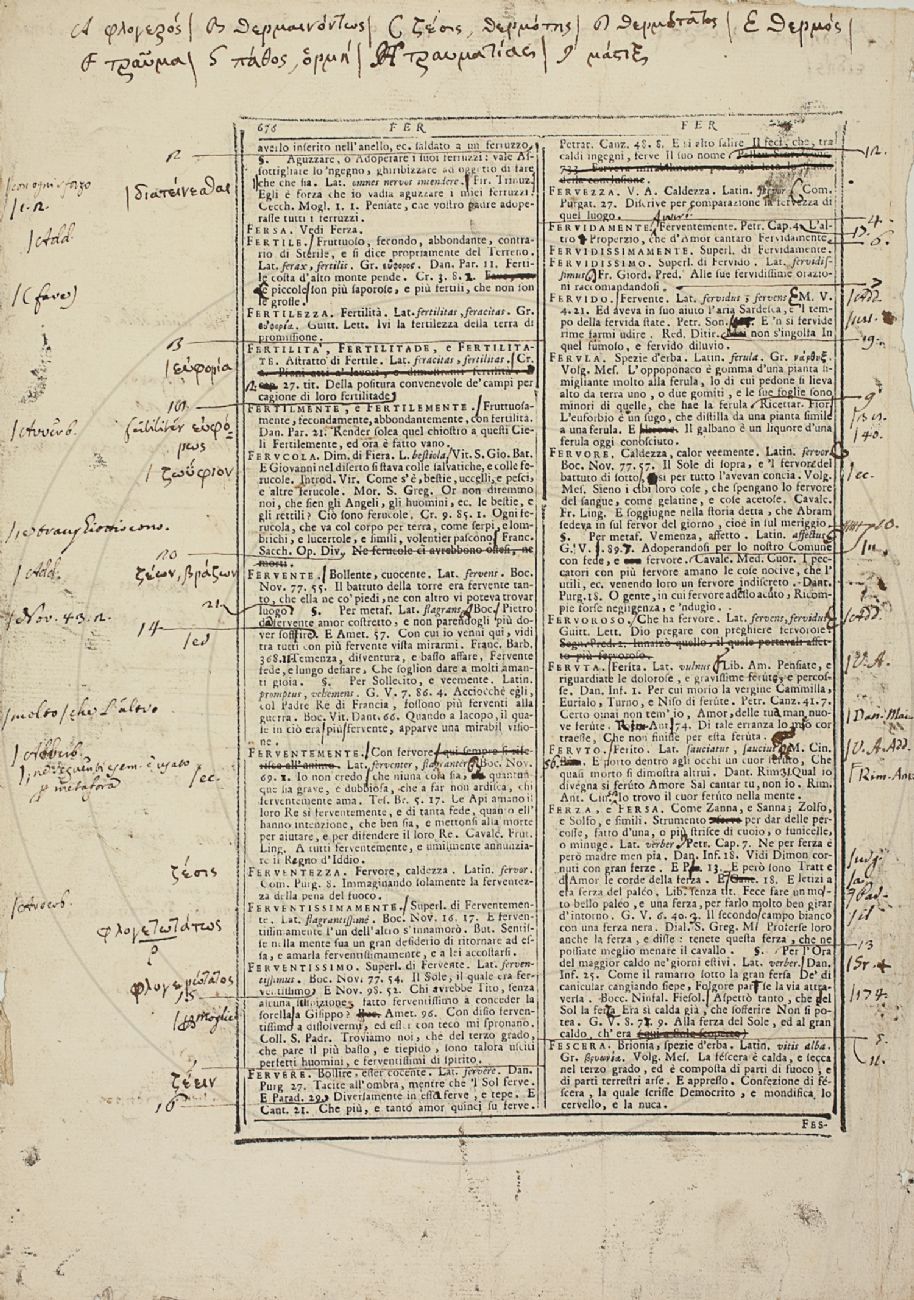 A φλογερός | B θερμαινόντως | C ζέσις, θερμότης | D θερμότατος | E θερμός |
F τραῦμα | G πάθος, ὁρμή | H τραυματίας | I μάστιξ
676 FER FER
averlo inserito nell'anello, ec. saldato a un ferruzzo.
§. Aguzzare, o Adoperare i suoi ferruzzi: vale As-
sottigliare lo 'ngegno, ghiribizzare ad oggetto di fare
che che sia. Lat. omnes nervos intendere. Fir. Trinuz.
Egli è forza che io vadia aguzzare i miei ferruzzi.
Cecch. Mogl. 1. 1. Pensate, che vostro padre adope-
rasse tutti i ferruzzi.
FERSA. Vedi Ferza.
FERTILE. Fruttuoso, fecondo, abbondante, contra-
rio di Sterile, e si dice propriamente del Terreno.
Lat. ferax, fertilis. Gr. εὔφορος. Dan. Par. 11. Ferti-
le costa d'alto monte pende. Cr. 3. 8. 2.
piccole son più saporose, e più fertili, che non son
le grosse.
FERTILEZZA. Fertilità. Lat. fertilitas, feracitas. Gr.
εὐφορία. Guitt. Lett. Ivi la fertilezza della terra di
promissione.
FERTILITA', FERTILITADE, e FERTILITA-
TE. Astratto di Fertile. Lat. feracitas, fertilitas. Cr.
27. tit. Della positura convenevole de' campi per
cagione di loro fertilitade
FERTILMENTE, e FERTILEMENTE. Fruttuosa-
mente, fecondamente, abbondantemente, con fertilità.
Dan. Par. 21. Render solea quel chiostro a questi Cie-
li Fertilemente, ed ora è fatto vano.
FERUCOLA. Dim. di Fiera. L. bestiola. Vit. S. Gio. Bat.
E Giovanni nel diserto si stava colle salvatiche, e colle fe-
rucole. Introd. Vir. Come s'è, bestie, uccelli, e pesci,
e altre ferucole. Mor. S. Greg. Or non diremmo
noi, che sien gli Angeli, gli huomini, ec. le bestie, e
gli rettili? Ciò sono ferucole. Cr. 9. 85. 1. Ogni fe-
rucola, che va col corpo per terra, come serpi, e lom-
brichi, e lucertole, e simili, volentier pascono. Franc.
Sacch. Op. Div. Ne ferucole ci avrebbono offesi, ne
morti.
FERVENTE. Bollente, cuocente. Lat. fervens. Boc.
Nov. 77. 55. Il battuto della torre era fervente tan-
to, che ella ne co' piedi, ne con altro vi poteva trovar
luogo §. Per metaf. Lat. flagrans. Boc. Pietro
da fervente amor costretto, e non parendogli più do-
ver sofferire. E Amet. 57. Con cui io venni qui, vidi
tra tutti con più fervente vista mirarmi. Franc. Barb.
368. 11 Temenza, disventura, e basso affare, Fervente
fede, e lungo desiare, Che soglion dare a molti aman-
ti gioia. §. Per Sollecito, e veemente. Latin.
promptus, vehemens. G. V. 7. 86. 4. Acciocchè egli,
col Padre Re di Francia, fossono più ferventi alla
guerra. Boc. Vit. Dant. 66. Quando a Iacopo, il qua-
le in ciò era più fervente, apparve una mirabil visio-
ne.
FERVENTEMENTE. Con fervore
Lat. ferventer, flagranter. Boc. Nov.
69. 2. Io non credo, che niuna cosa sia, quantun-
que sia grave, e dubbiosa, che a far non ardisca, chi
ferventemente ama. Tes. Br. 5. 17. Le Api amano il
loro Re sì ferventemente, e di tanta fede, quanto ell'
hanno intenzione, che ben sia, e mettonsi alla morte
per aiutare, e per difendere il loro Re. Cavalc. Frut.
Ling. A tutti ferventemente, e umilmente annunzia-
te il Regno d'Iddio.
FERVENTEZZA. Fervore, caldezza. Latin. fervor.
Com. Purg. 8. Immaginando solamente la ferventez-
za della pena del fuoco.
FERVENTISSIMAMENTE. Superl. di Ferventemen-
te. Lat. flagrantissimè. Boc. Nov. 16. 17. E ferven-
tissimamente l'un dell'altro s'innamorò. But. Sentis-
se nella mente sua un gran desiderio di ritornare ad es-
sa, e amarla ferventissimamente, e a lei accostarsi.
FERVENTISSIMO. Superl. di Fervente. Lat. ferven-
tissimus. Boc. Nov. 77. 54. Il Sole, il quale era fer-
ventissimo. E Nov. 98. 52. Chi avrebbe Tito, senza
alcuna dilazione, fatto ferventissimo a conceder la
sorella a Gisippo? Amet. 96. Con disio ferven-
tissimo a dissolvermi, ed esser con teco mi spronano.
Coll. S. Padr. Troviamo noi, che del terzo grado,
che pare il più basso, e tiepido, sono talora usciti
perfetti huomini, e ferventissimi di spirito.
FERVERE. Bollire, esser cocente. Lat. fervere. Dan.
Purg. 27. Tacite all'ombra, mentre che 'l Sol ferve.
E Parad. 29. Diversamente in essa ferve, e tepe. E
Cant. 21. Che più, e tanto amor quinci su ferve.
Petrar. Canz. 48. 8. E sì alto salire Il feci, che, tra
caldi ingegni, ferve Il suo nome
FERVEZZA. V. A. Caldezza. Latin. fervor Com.
Purgat. 27. Discrive per comparazione la fervezza di
quel luogo.
FERVIDAMENTE. Ferventemente. Petr. Cap. 4. L'al-
tro è Properzio, che d'Amor cantaro Fervidamente.
FERVIDISSIMAMENTE. Superl. di Fervidamente.
FERVIDISSIMO. Superl. di Fervido. Lat. fervidis-
simus. Fr. Giord. Pred. Alle sue fervidissime orazio-
ni raccomandandosi.
FERVIDO. Fervente. Lat. fervidus; fervens. M. V.
4. 21. Ed aveva in suo aiuto l'aria Sardesca, e 'l tem-
po della fervida state. Petr. Son. E 'n sì fervide
rime farmi udire. Red. Ditir. non s'ingolla In
quel fumolo, e fervido diluvio.
FERULA. Spezie d'erba. Latin. ferula. Gr. νάρθηξ.
Volg. Mes. L'oppoponaco è gomma d'una pianta si-
migliante molto alla ferula, lo di cui pedone si lieva
alto da terra uno, o due gomiti, e le sue foglie sono
minori di quelle, che hae la ferula. Ricettar. Fior.
L'euforbio è un sugo, che distilla da una pianta simile
a una ferula. E Il galbano è un liquore d'una
ferula oggi conosciuto.
FERVORE. Caldezza, calor veemente. Latin. fervor.
Boc. Nov. 77. 57. Il Sole di sopra, e 'l fervor del
battuto di sotto, sì per tutto l'avevan concia. Volg.
Mes. Sieno i cibi loro cose, che spengano lo fervore
del sangue, come gelatine, e cose acetose. Cavalc.
Fr. Ling. E soggiugne nella storia detta, che Abram
sedeva in sul fervor del giorno, cioè in sul meriggio.
§. Per metaf. Vemenza, affetto. Latin. affectus.
G. V. 1. 89. 7. Adoperandosi per lo nostro Comune
con fede, e fervore. Cavalc. Med. Cuor. I pec-
catori con più fervore amano le cose nocive, che l'
utili, ec. venendo loro un fervore indiscreto. Dant.
Purg. 18. O gente, in cui fervore adesso acuto, Ricom-
pie forse negligenza, e 'ndugio.
FERVOROSO. Che ha fervore. Lat. fervens, fervidus.
Guitt. Lett. Dio pregare con preghiere fervorose.
Segn. Pred. 2. Innalzò quello, il quale portavasi affet-
to più fervoroso.
FERUTA. Ferita. Lat. vulnus. Lib. Am. Pensate, e
riguardiate le dolorose, e gravissime ferúte, e percos-
se. Dan. Inf. 1. Per cui morio la vergine Cammilla,
Eurialo, Turno, e Niso di ferúte. Petr. Canz. 41. 7.
Certo omai non tem' io, Amor, delle tua man nuo-
ve ferúte. Rim. Ant. 74. Di tale erranza lo mio cor
traesse, Che non finisse per esta ferúta.
FERUTO. Ferito. Lat. sauciatus, saucius. M. Cin.
56. E porto dentro agli occhi un cuor feruto, Che
quasi morto si dimostra altrui. Dant. Rim. 31 Qual io
divegna sì feruto Amore Sal cantar tu, non io. Rim.
Ant. Cin. Io trovo il cuor feruto nella mente.
FERZA, e FERSA. Come Zanna, e Sanna; Zolfo,
e Solfo, e simili. Strumento per dar delle per-
cosse, fatto d'una, o più strisce di cuoio, o funicelle,
o minuge. Lat. verber. Petr. Cap. 7. Ne per ferza è
però madre men pia. Dan. Inf. 18. Vidi Dimon cor-
nuti con gran ferze. E 13. E però sono Tratte
d'Amor le corde della ferza. E 18. E letizia
era ferza del paléo. Lib. Senza tit. Fece fare un mol-
to bello paléo, e una ferza, per farlo molto ben girar
d'intorno. G. V. 6. 40. 2. Il secondo campo bianco
con una ferza nera. Dial. S. Greg. M. Proferse loro
anche la ferza, e disse: tenete questa ferza, che ne
possiate meglio menare il cavallo. §. Per l'Ora
del maggior caldo ne' giorni estivi. Lat. verber. Dan.
Inf. 25. Come il ramarro sotto la gran fersa De' dì
canicular cangiando siepe, Folgore par se la via attra-
versa. Bocc. Ninfal. Fiesol. Aspettò tanto, che del
Sol la fersa Era sì calda già, che sofferire Non si po-
tea. G. V. 8. 71. 9. Alla ferza del Sole, ed al gran
caldo, ch' era
FESCERA. Brionia, spezie d'erba. Latin. vitis alba.
Gr. βρυωνία. Volg. Mes. La féscera è calda, e secca
nel terzo grado, ed è composta di parti di fuoco, e
di parti terrestri arse. E appresso. Confezione di fé-
scera, la quale scrisse Democrito, e mondifica lo
cervello, e la nuca.
FES-
2
| διατείνεσθαι
| Add.
13
| εὐφορία
101
| Avverb.
fertiliter εὐφό-
ρως
| ζωΰφιον
20
| Add.
ζέων, βράζων
21
| Nov. 43. 2.
14
| ed
| molto | che l'altro
| Avverb.
| ec.
p metafora
ζέσις
| Avverb.
φλογερωτάτως
φλογερώτατος
15
| moglie
ζέειν
16
12.
4.
17.
6.
7
| Add.
19.
9
140.
| ec.
10.
| Add.
| V. A.
| Dan. Mai
| V. A. Add.
| Rim. Ant.
13
| 174.
5.
11.